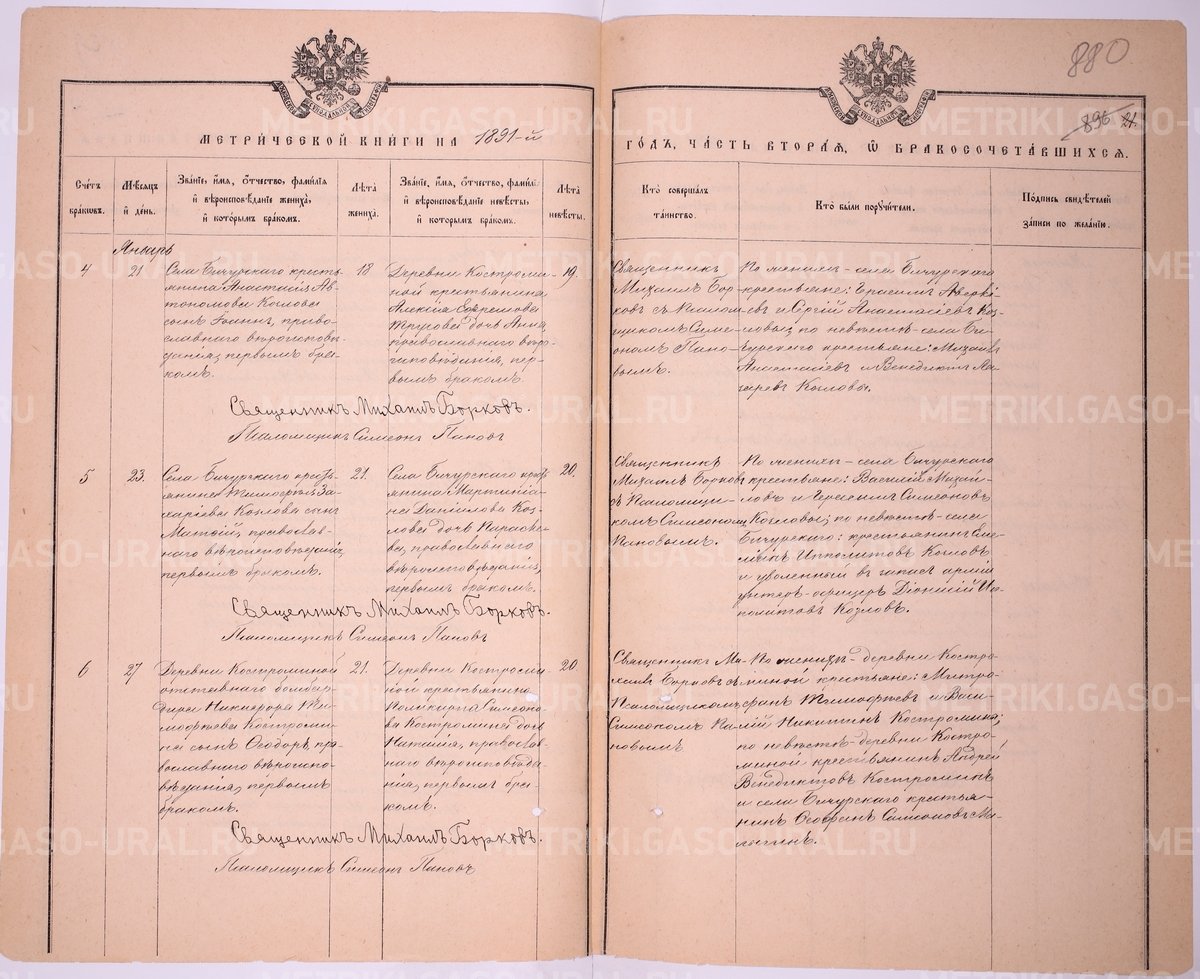 880
896
МЕТРИЧЕСКОЙ КНИГИ НА 1891-й
ГОДЪ, ЧАСТЬ ВТОРАЯ, Ѡ БРАКОСОЧЕТАВШИХСЯ.
Счетъ
браковъ.
Мѣсяцъ
и день.
Званіе, имя, отчество, фамилія
и вѣроисповѣданіе жениха,
и которымъ бракомъ.
Лѣта
жениха.
Званіе, имя, отчество, фамилія
и вѣроисповѣданіе невѣсты,
и которымъ бракомъ.
Лѣта
невѣсты.
Кто совершалъ
таинство.
Кто были поручители.
Подпись свидѣтелей
записи по желанію.
Январь
4
21
Села Бичурскаго кресть-
янина Анастасія Ав-
тономова Козлова
сынъ Іоаннъ, право-
славнаго вѣроисповѣ-
данія, первымъ бра-
комъ.
18
Деревни Костроми-
ной крестьянина
Алексія Ефремова
дочь Анна,
православнаго вѣро-
исповѣданія, пер-
вымъ бракомъ.
19.
Священникъ
Михаилъ Бор-
ковъ съ Псалом-
щикомъ Симе-
ономъ Пано-
вымъ.
По женихѣ - села Бичурскаго
крестьяне: Герасимъ Аверкі-
евъ и Сергій Анастасіевъ Коз-
ловы; по невѣстѣ - села Би-
чурскаго крестьяне: Михаилъ
Анастасіевъ и Венедиктъ Ла-
заревъ Козловы.
Священникъ Михаилъ Борковъ.
Псаломщикъ Симеонъ Пановъ
5
23.
Села Бичурскаго кресть-
янина Тимофея За-
харіева Козлова сынъ
Матѳій, православ-
наго вѣроисповѣданія,
первымъ бракомъ.
21.
Села Бичурскаго кресть-
янина Мартиніа-
на Данілова Коз-
лова дочь Параске-
ва, православнаго
вѣроисповѣданія,
первымъ бракомъ.
20.
Священникъ
Михаилъ Борковъ
съ Псаломщи-
комъ Симеономъ
Пановымъ.
По женихѣ - села Бичурскаго
крестьяне: Василій Михаи-
ловъ и Симеоновъ
Козловы; по невѣстѣ - села
Бичурскаго: крестьянинъ
Ипполитовъ Козловъ
и уволенный въ запасъ арміи
унтеръ-офицеръ Діонисій Ип-
политовъ Козловъ.
Священникъ Михаилъ Борковъ.
Псаломщикъ Симеонъ Пановъ
6
27
Деревни Костроминой
отставнаго бомбар-
дира Никифора Ти-
мофѣева Костроми-
на сынъ Ѳеодоръ, пра-
вославнаго вѣроиспо-
вѣданія, первымъ
бракомъ.
21.
Деревни Костроми-
ной крестьянина
Поликарпа Симеоно-
ва Костромина дочь
Наталія, православ-
наго вѣроисповѣда-
нія, первымъ бра-
комъ.
20
Священникъ Ми-
хаилъ Борковъ съ
Псаломщикомъ
Симеономъ Па-
новымъ
По женихѣ - деревни Костро-
миной крестьяне: Митро-
фанъ Тимофѣевъ и Васи-
лій Никитинъ Костромины;
по невѣстѣ - деревни Костро-
миной крестьянинъ Андрей
Венедиктовъ Костроминъ
и села Бичурскаго крестья-
нинъ Симеоновъ
Священникъ Михаилъ Борковъ.
Псаломщикъ Симеонъ Пановъ
METRIKI.GASO-URAL.RU